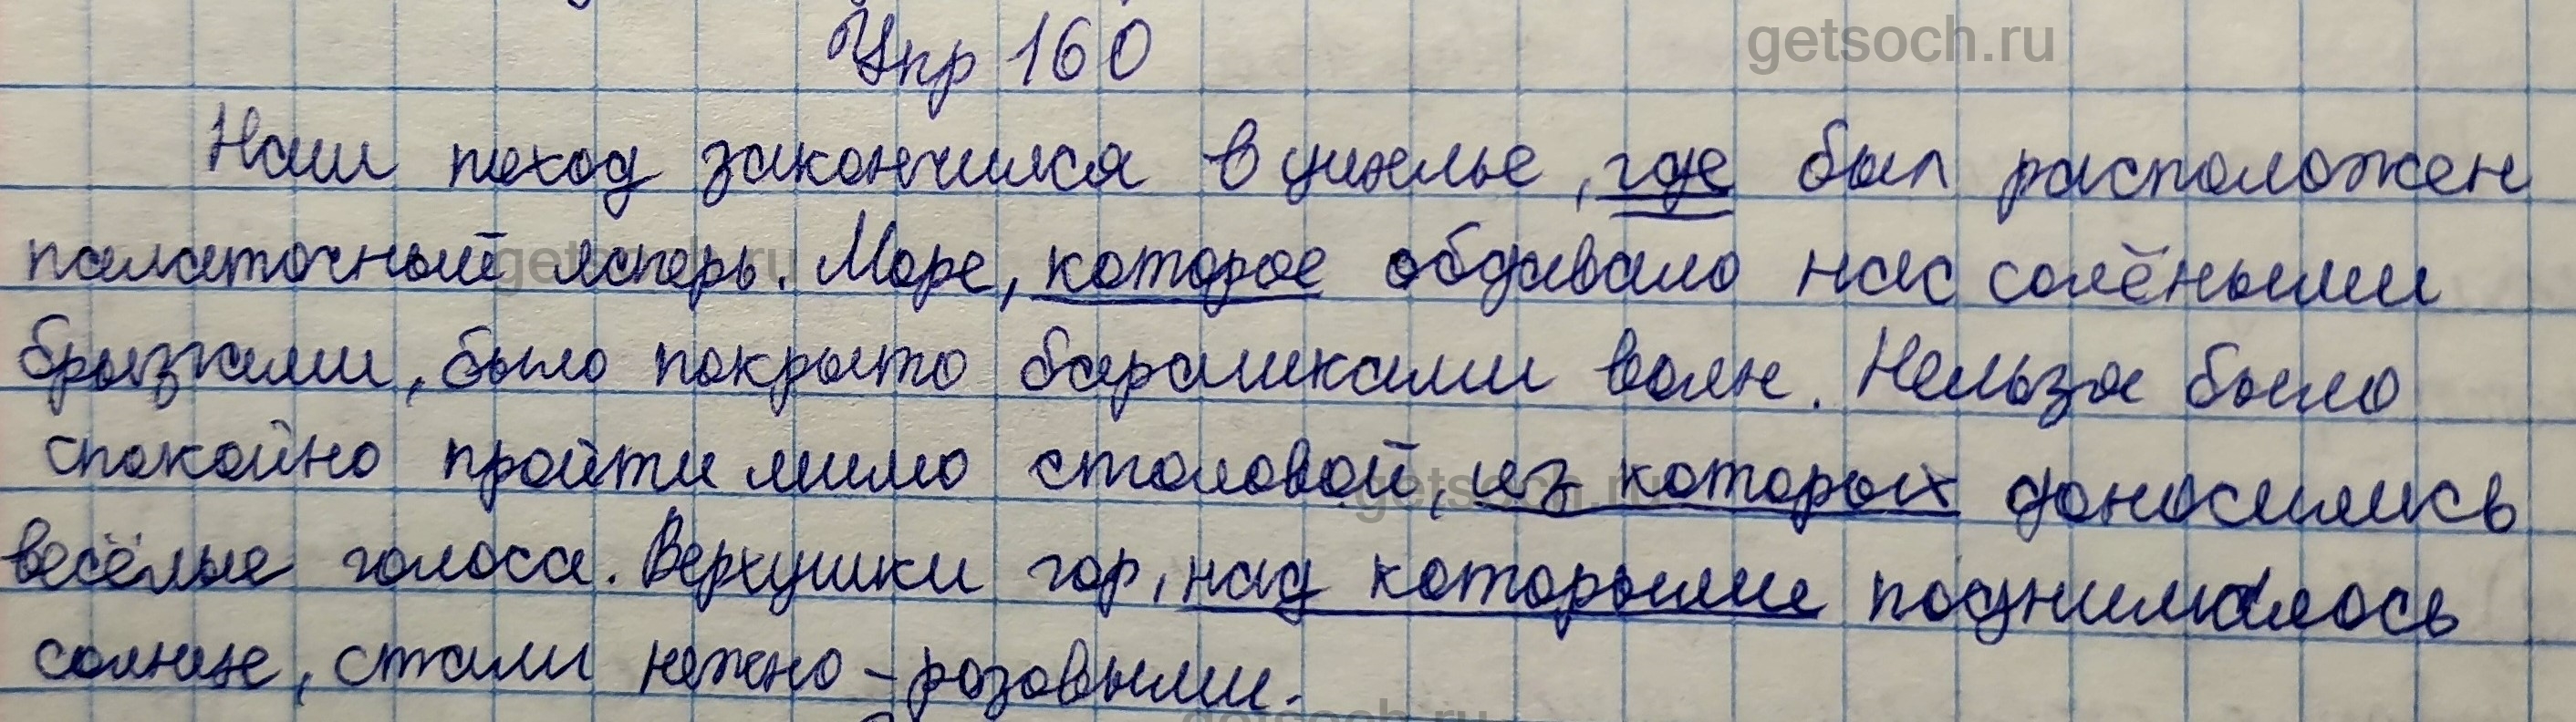 Упр 160
getsoch.ru
Наш поход закончился в ущелье, где был расположен
палаточный лагерь. Море, которое обдавало нас солёными
getsoch.ru
брызгами, было покрыто барашками волн. Нельзя было
спокойно пройти мимо столовой, из которых доносились
getsoch.ru
весёлые голоса. Верхушки гор, над которыми поднималось
солнце, стали нежно-розовыми.
getsoch.ru